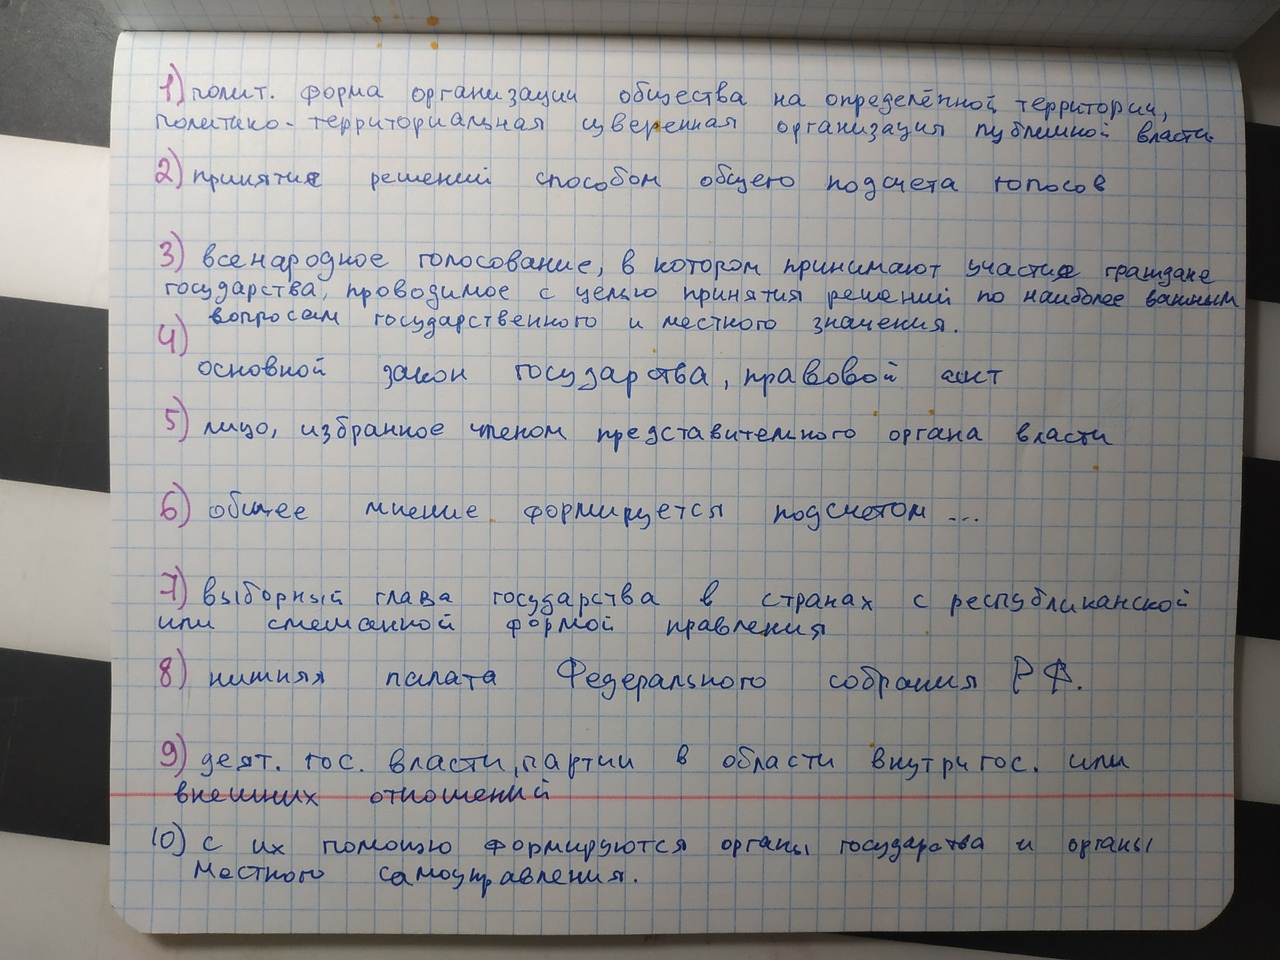 1) полит. форма организации общества на определённой территории,
политико-территориальная суверенная организация публичной власти.
2) принятие решений способом общего подсчета голосов
3) всенародное голосование, в котором принимают участие граждане
государства, проводимое с целью принятия решений по наиболее важным
вопросам государственного и местного значения.
4)
основной закон государства, правовой акт
5) лицо, избранное членом представительного органа власти
6) общее мнение формируется подсчетом ...
7) выборный глава государства в странах с республиканской
или смешанной формой правления
8) нижняя палата Федерального собрания РФ.
9) деят. гос. власти, партии в области внутригос. или
внешних отношений
10) с их помощью формируются органы государства и органы
местного самоуправления.